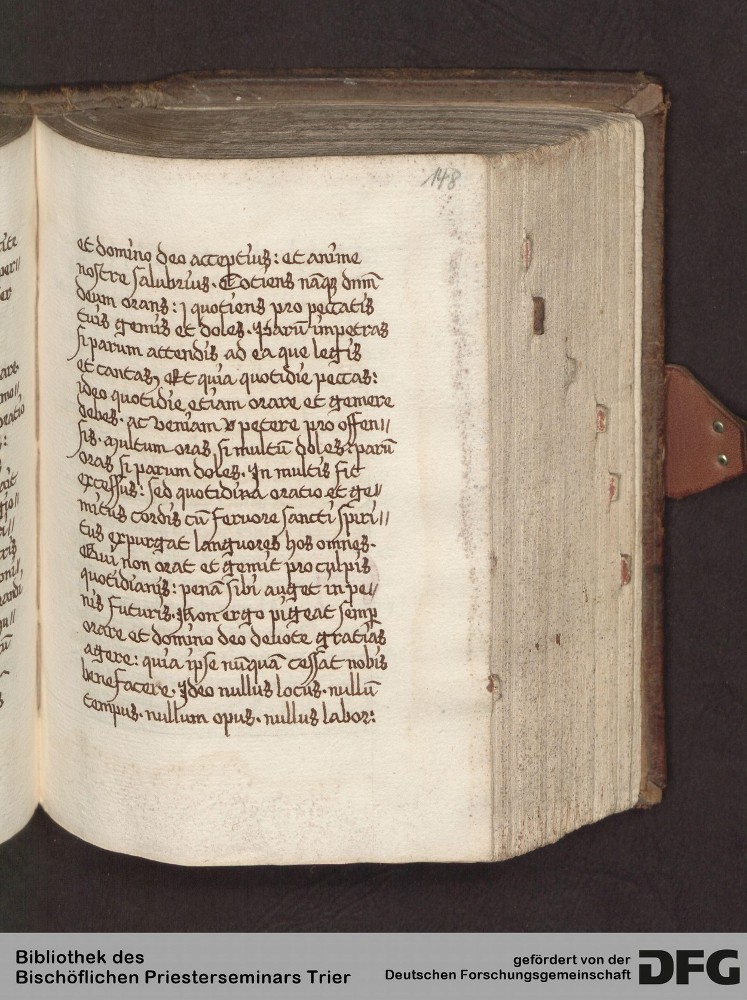 148
et domino deo acceptius: et anime
nostre salubrius. Totiens nāqꝫ dnm̄
deum orans: ⁊ quotiens pro peccatis
tuis gemis et doles. Parū impetras
si parum attendis ad ea que legis
et cantas, Et quia quotidie peccas:
ideo quotidie etiam orare et gemere
debes. ac veniam petere pro offen//
sis. Multum oras, si multū doles: parū
oras si parum doles. In multis fit
excessus: sed quotidiana oratio et ge//
mitus cordis cū feruore sancti spiri//
tus expurgat languores hos omnes.
Qui non orat et gemit pro culpis
quotidianis: penā sibi auget in pe//
nis futuris. Non ergo pigeat semꝑ
orare et domino deo deuote gratias
agere: quia ipse nūquā cessat nobis
benefacere. Ideo nullus locus. nullū
tempus. nullum opus. nullus labor:
Bibliothek des
Bischöflichen Priesterseminars Trier
gefördert von der
Deutschen Forschungsgemeinschaft
DFG